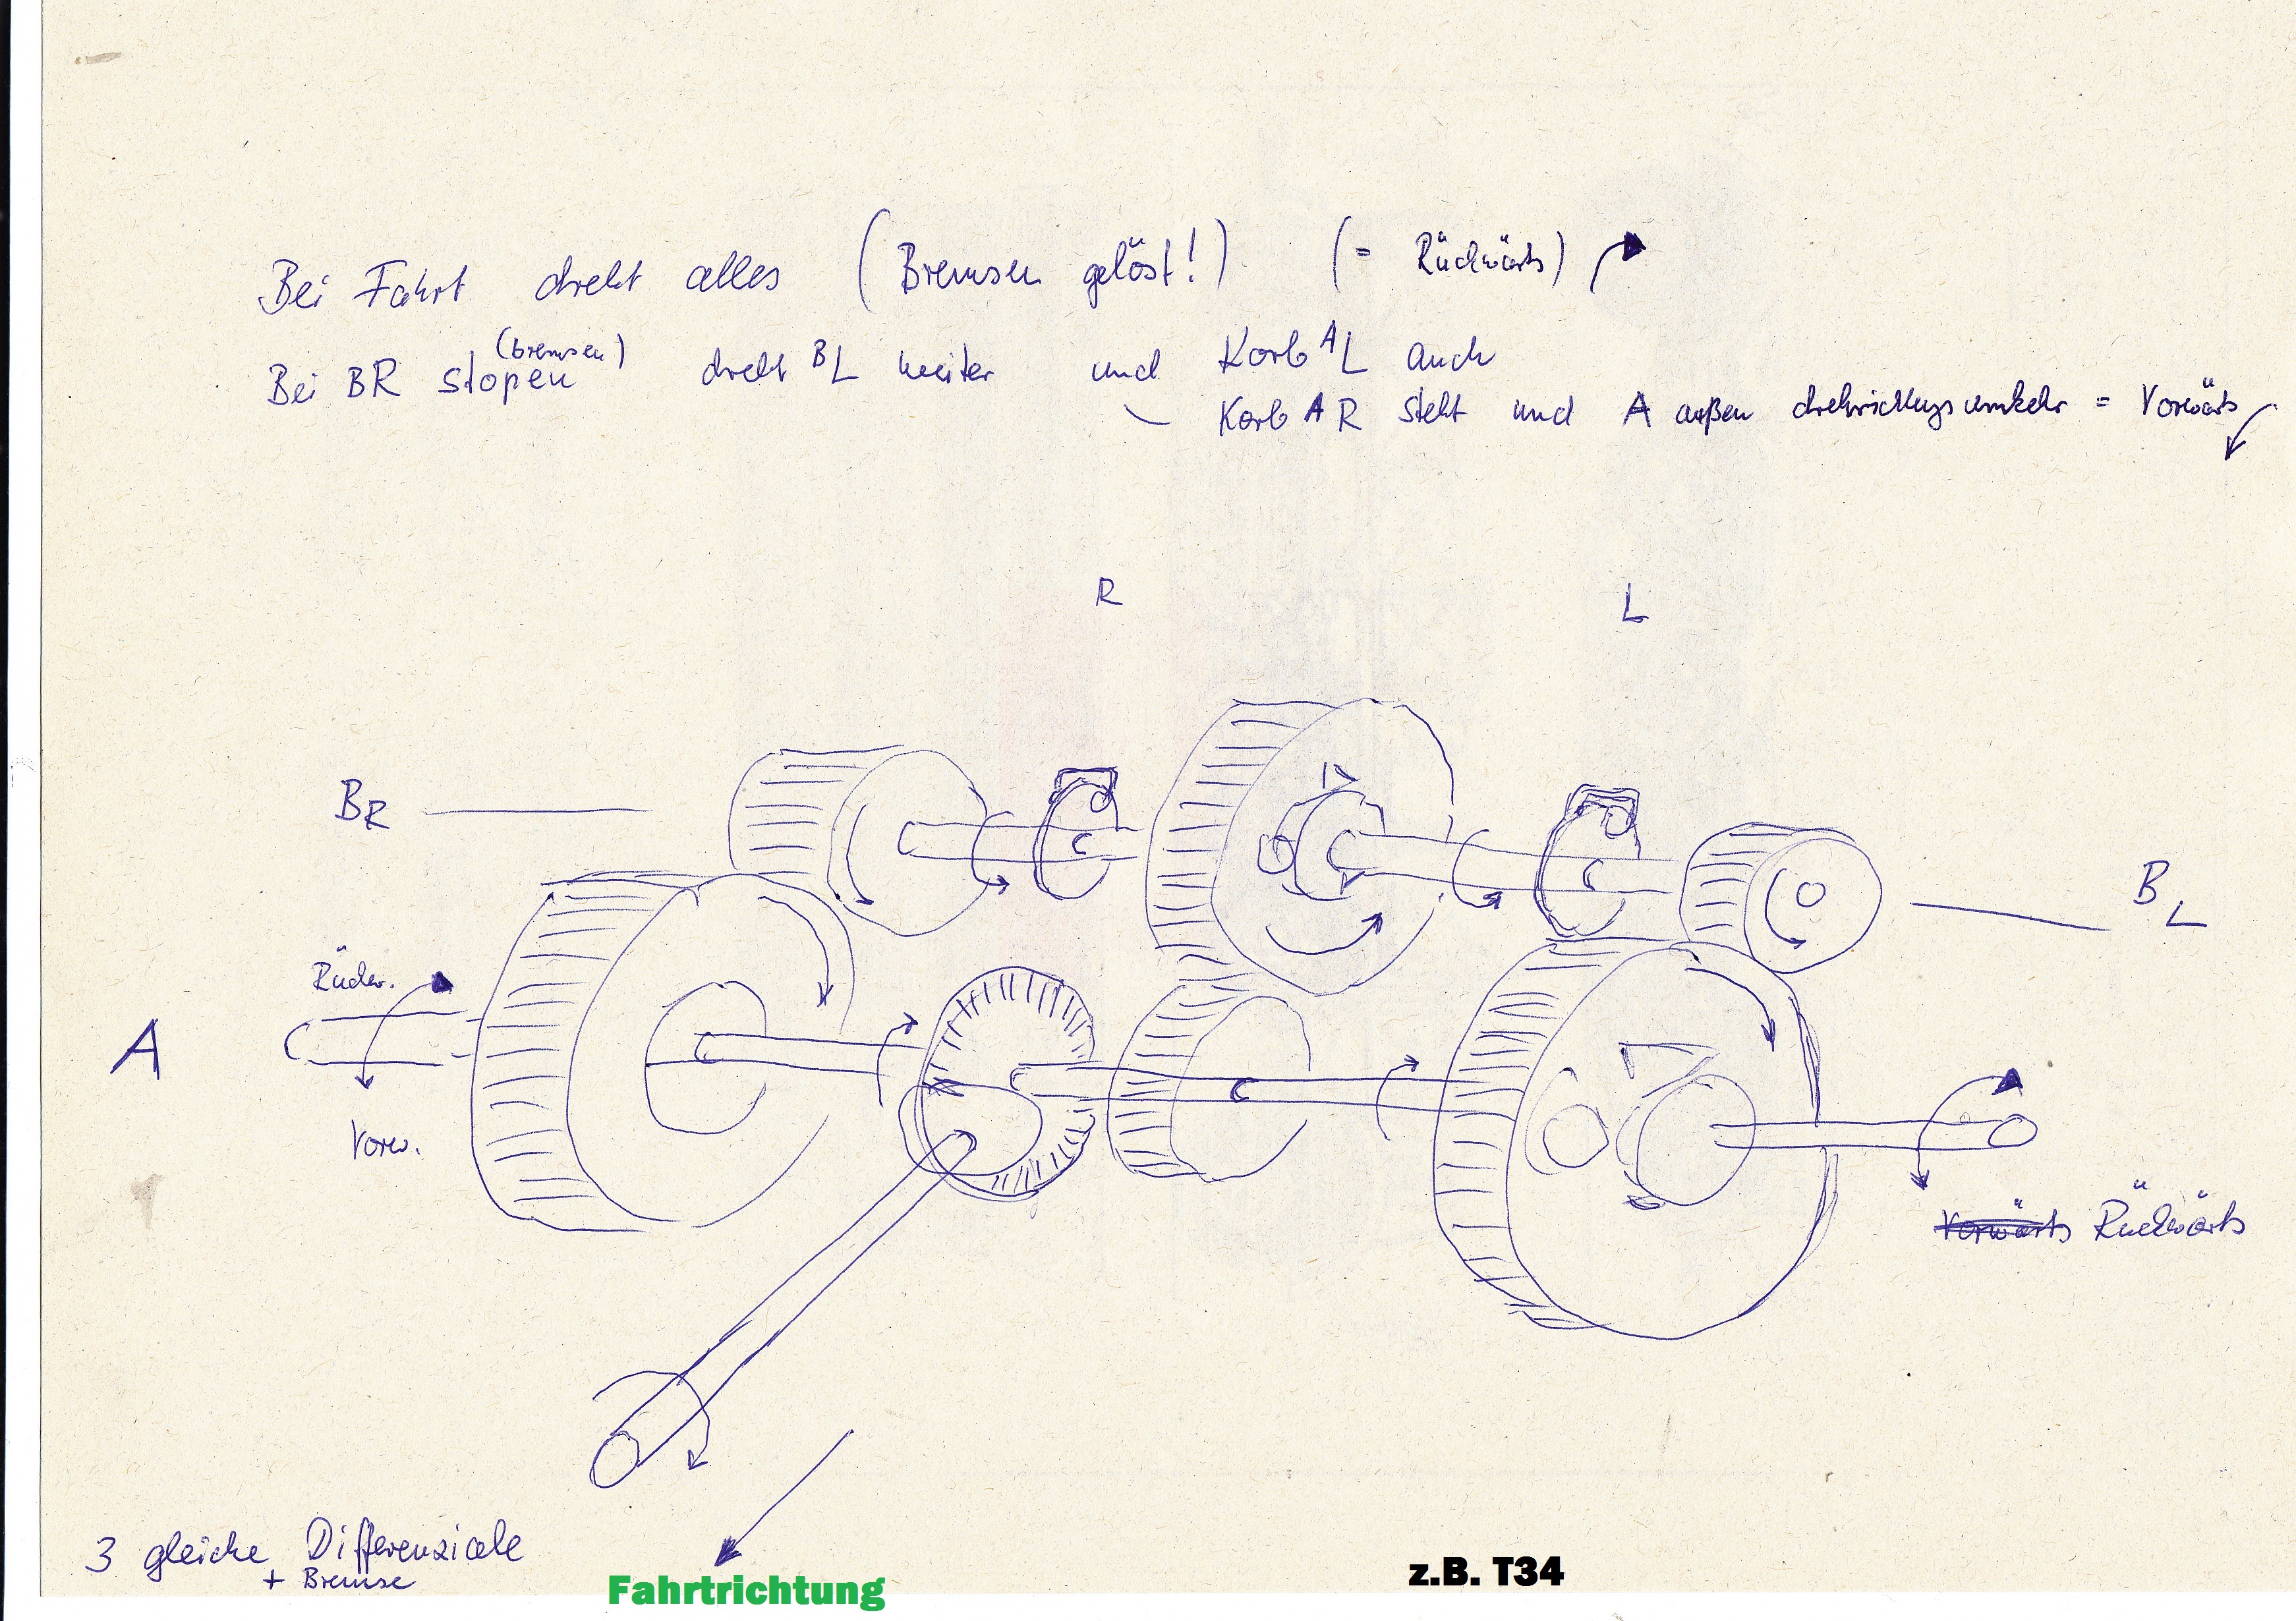 Bei Fahrt dreht alles (Bremsen gelöst!) (= Rückwärts)
Bei BR stopen (bremsen) dreht BL weiter und Korb AL auch
Korb AR steht und A außen drehrichtungsumkehr = Vorwärts
R
L
BR
BL
Rückw.
A
Vorw.
Vorwärts Rückwärts
3 gleiche Differenziale
+ Bremse
Fahrtrichtung
z.B. T34